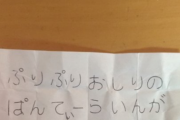 ぷりぷりおしりの
ぱんてぃーらいんが